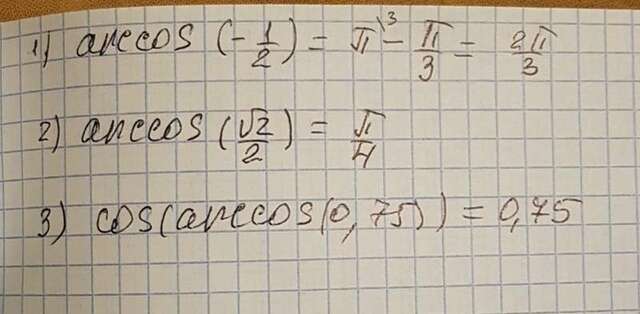 1) arccos (-1/2) = π\³ - π/3 = 2π/3
2) arccos (√2/2) = π/4
3) cos(arccos(0,75)) = 0,75